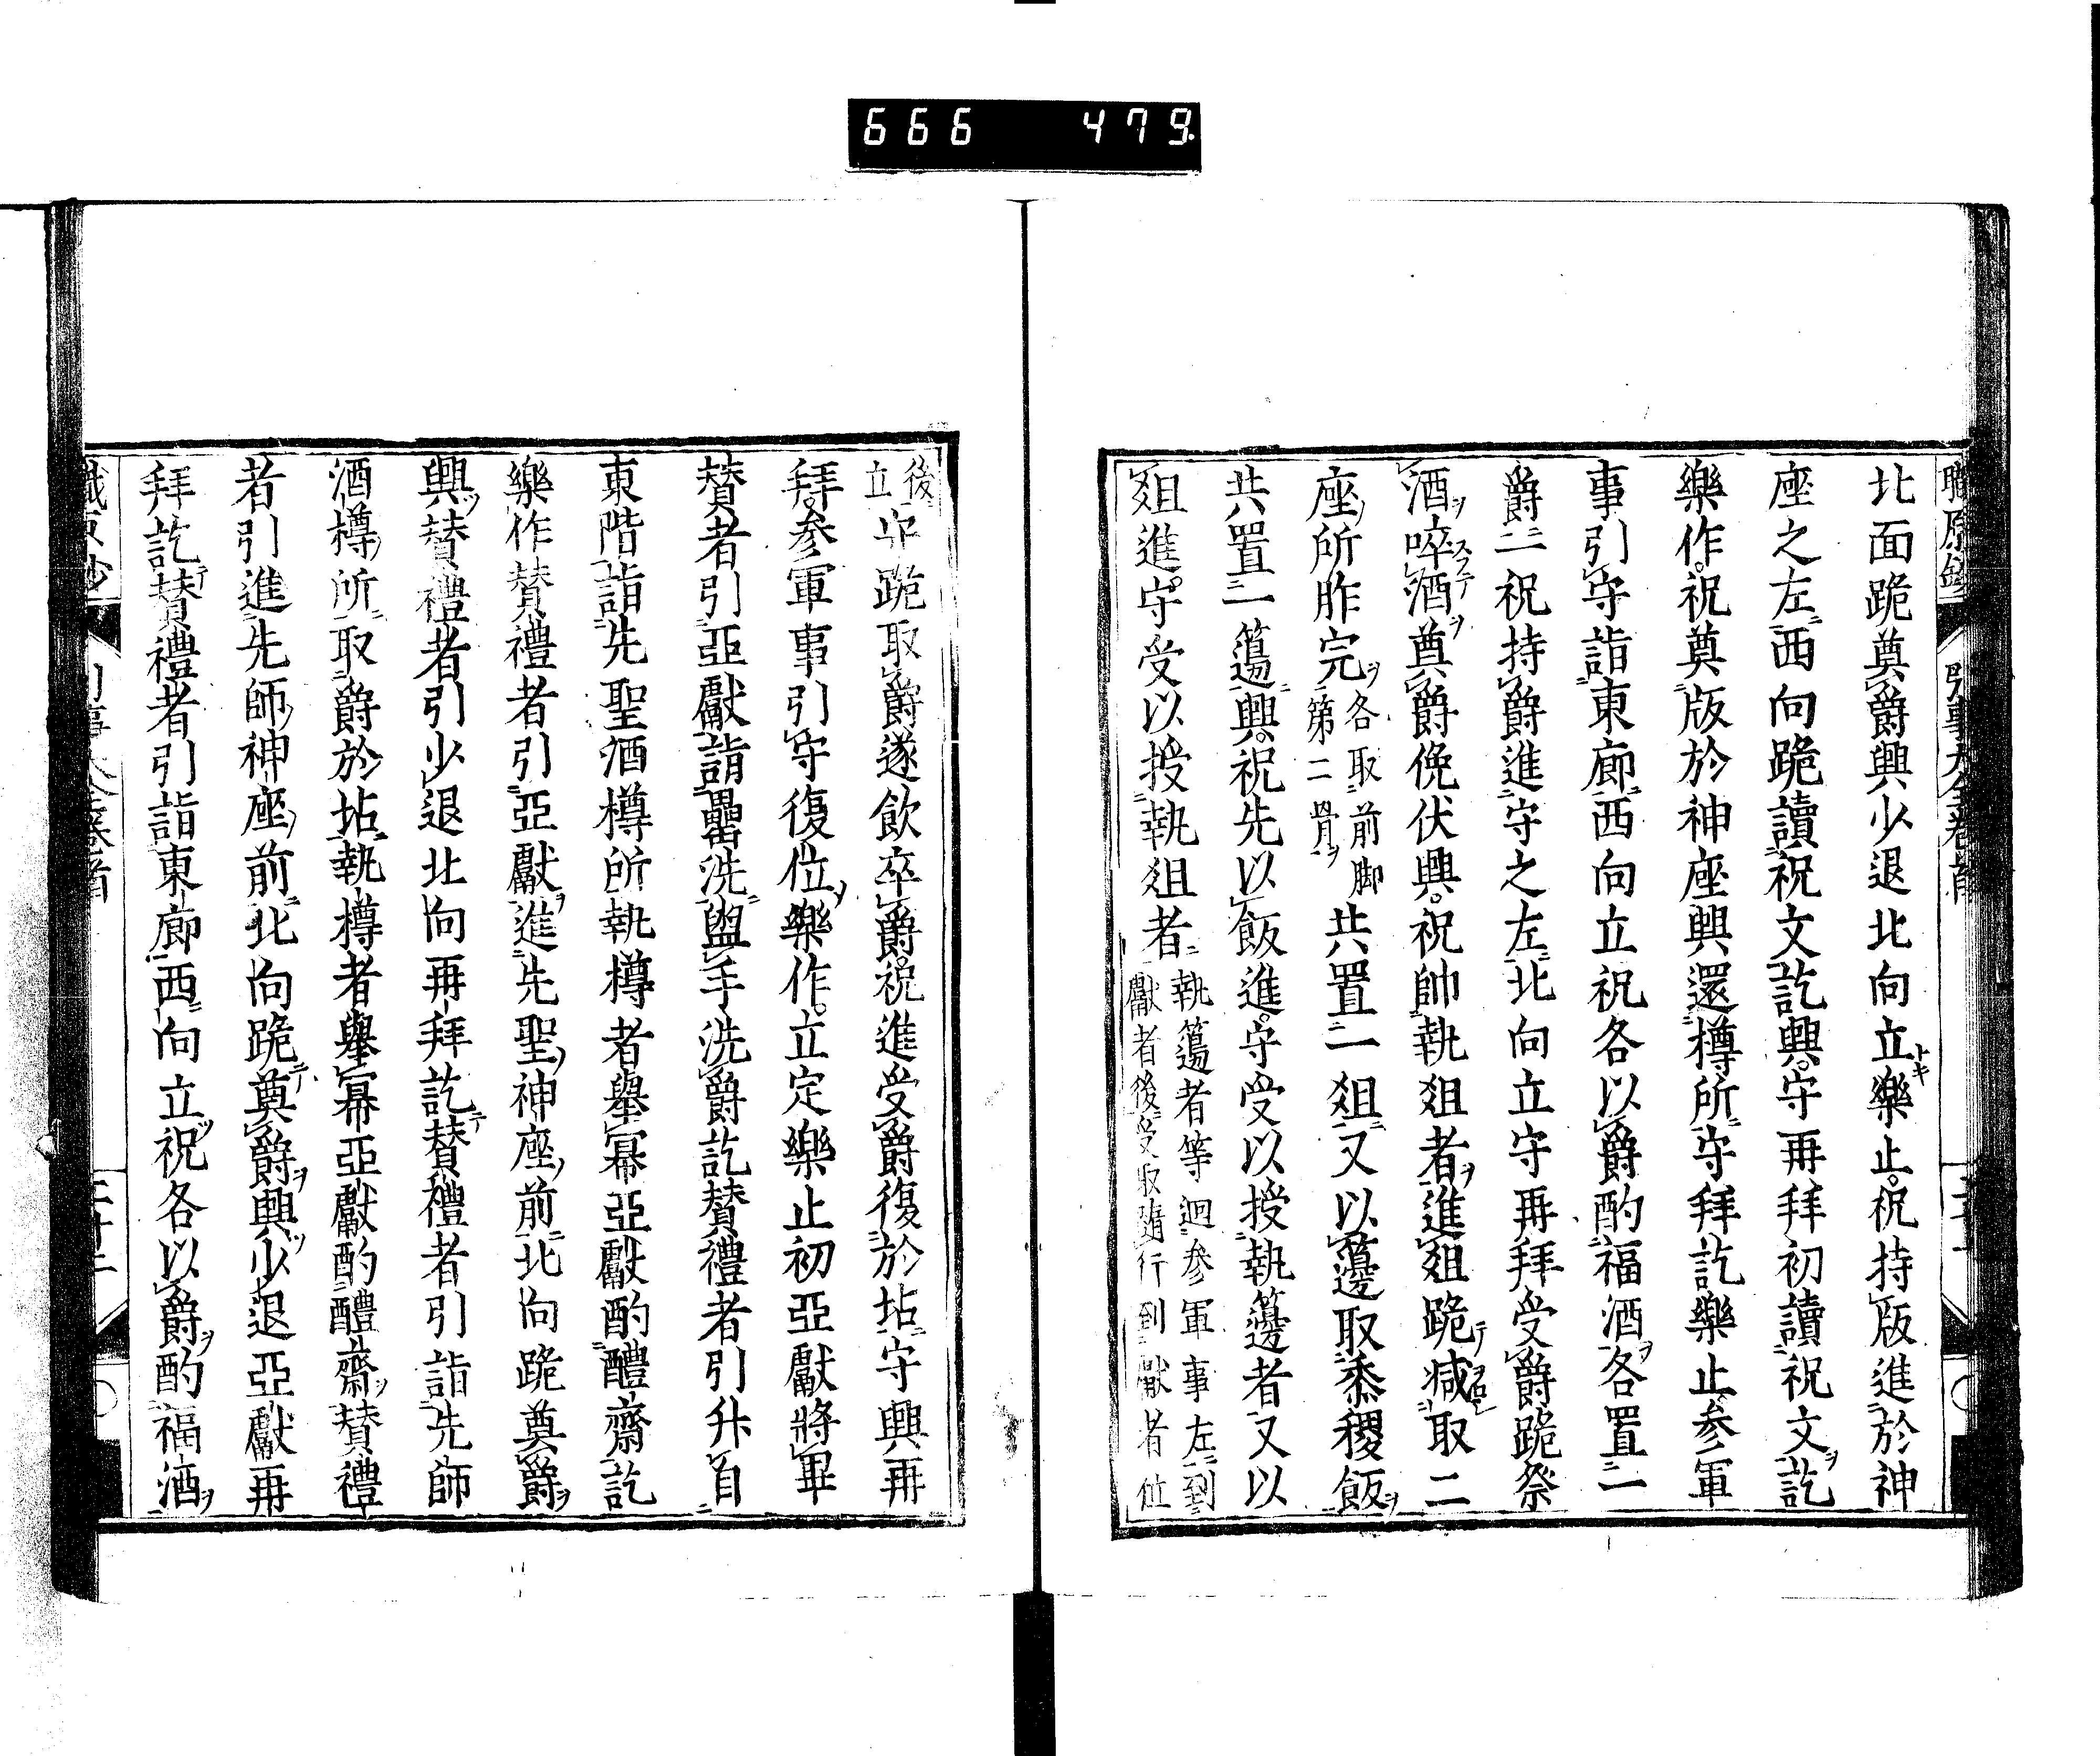 666 479
北面跪奠爵興少退北向立樂止祝持版進於神
座之左西向跪讀祝文訖興守再拜初讀祝文訖
樂作祝奠版於神座興還樽所守拜訖樂止参軍
事引守詣東廊西向立祝各以爵酌福酒各置一
爵二祝持爵進守之左北向立守再拜受爵跪祭
酒啐酒奠爵俛伏興祝帥執俎者進俎跪減取二
座所胙完各取前脚第二骨共置一俎又以籩取黍稷飯
共置一簜興祝先以飯進守受以授執籩者又以
俎進守受以授執俎者執簜者等迴参軍事左到
獻者後受取隨行到獻者位
後立守跪取爵遂飲卒爵祝進受爵復於坫守興再
拜参軍事引守復位樂作立定樂止初亞獻將畢
賛者引亞獻詣罍洗盥手洗爵訖賛禮者引升自
東階詣先聖酒樽所執樽者舉冪亞獻酌醴齋訖
樂作賛禮者引亞獻進先聖神座前北向跪奠爵
興賛禮者引少退北向再拜訖賛禮者引詣先師
酒樽所取爵於坫執樽者舉冪亞獻酌醴齋賛禮
者引進先師神座前北向跪奠爵興少退亞獻再
拜訖賛禮者引詣東廊西向立祝各以爵酌福酒